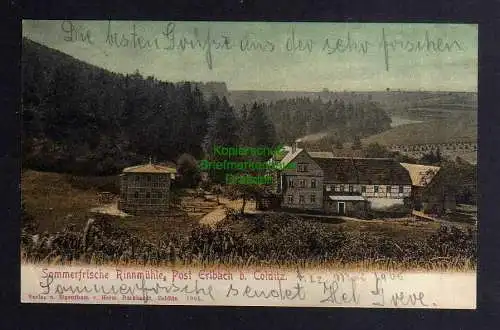 Die besten Grüsse aus der sehr frischen
Kopierschutz
Briefmarken
Dresden
Sommerfrische Rinnmühle, Post Erlbach b. Colditz.
Verlag u. Eigenthum v. Herm. Burkhardt, Colditz
Sommerfrische sendet